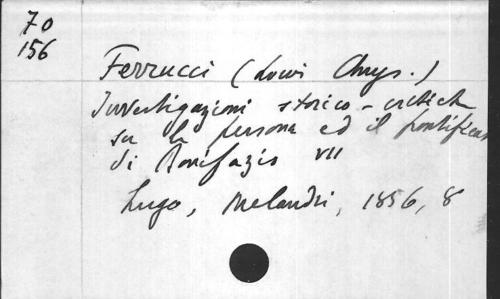 70
156
Ferrucci (Louri Chrys.)
Investigazioni storico-critich
su la persona ed il pontificato
di Bonifazio VII
Lugo, Melandri, 1856, 8